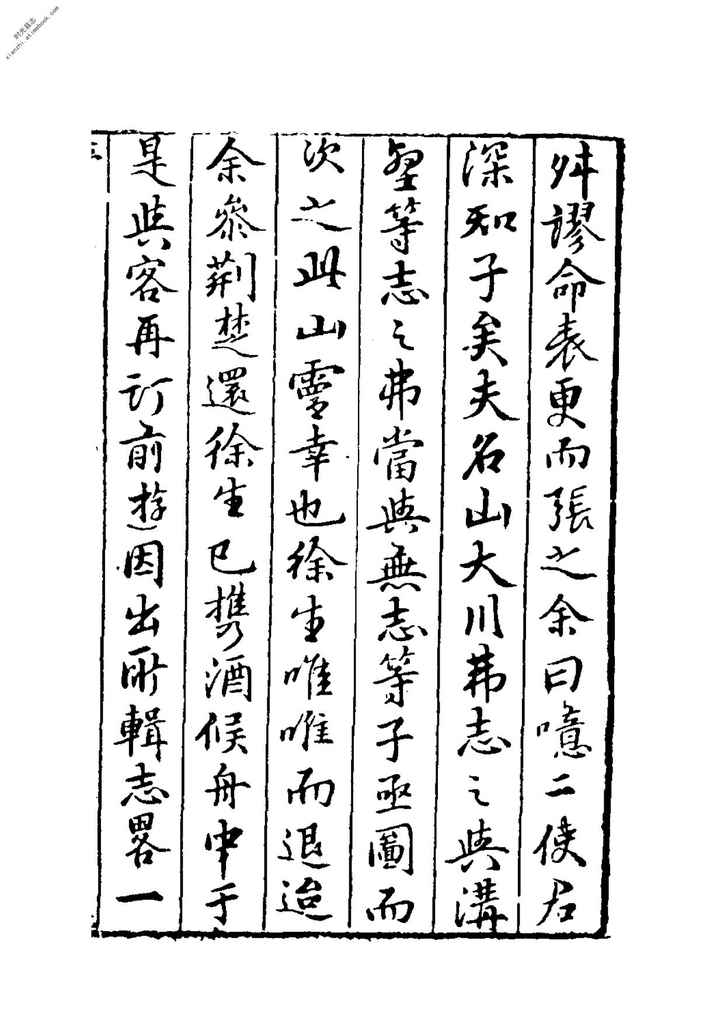 舛謬命表更而張之余曰噫二使君
深知子矣夫名山大川弗志之與溝
壑等志之弗當與無志等子亟圖而
次之此山靈幸也徐生唯唯而退迨
余參荆楚還徐生已携酒候舟中于
是與客再订前遊因出所輯志畧一
时光县志
xianzhi.atimebook.com